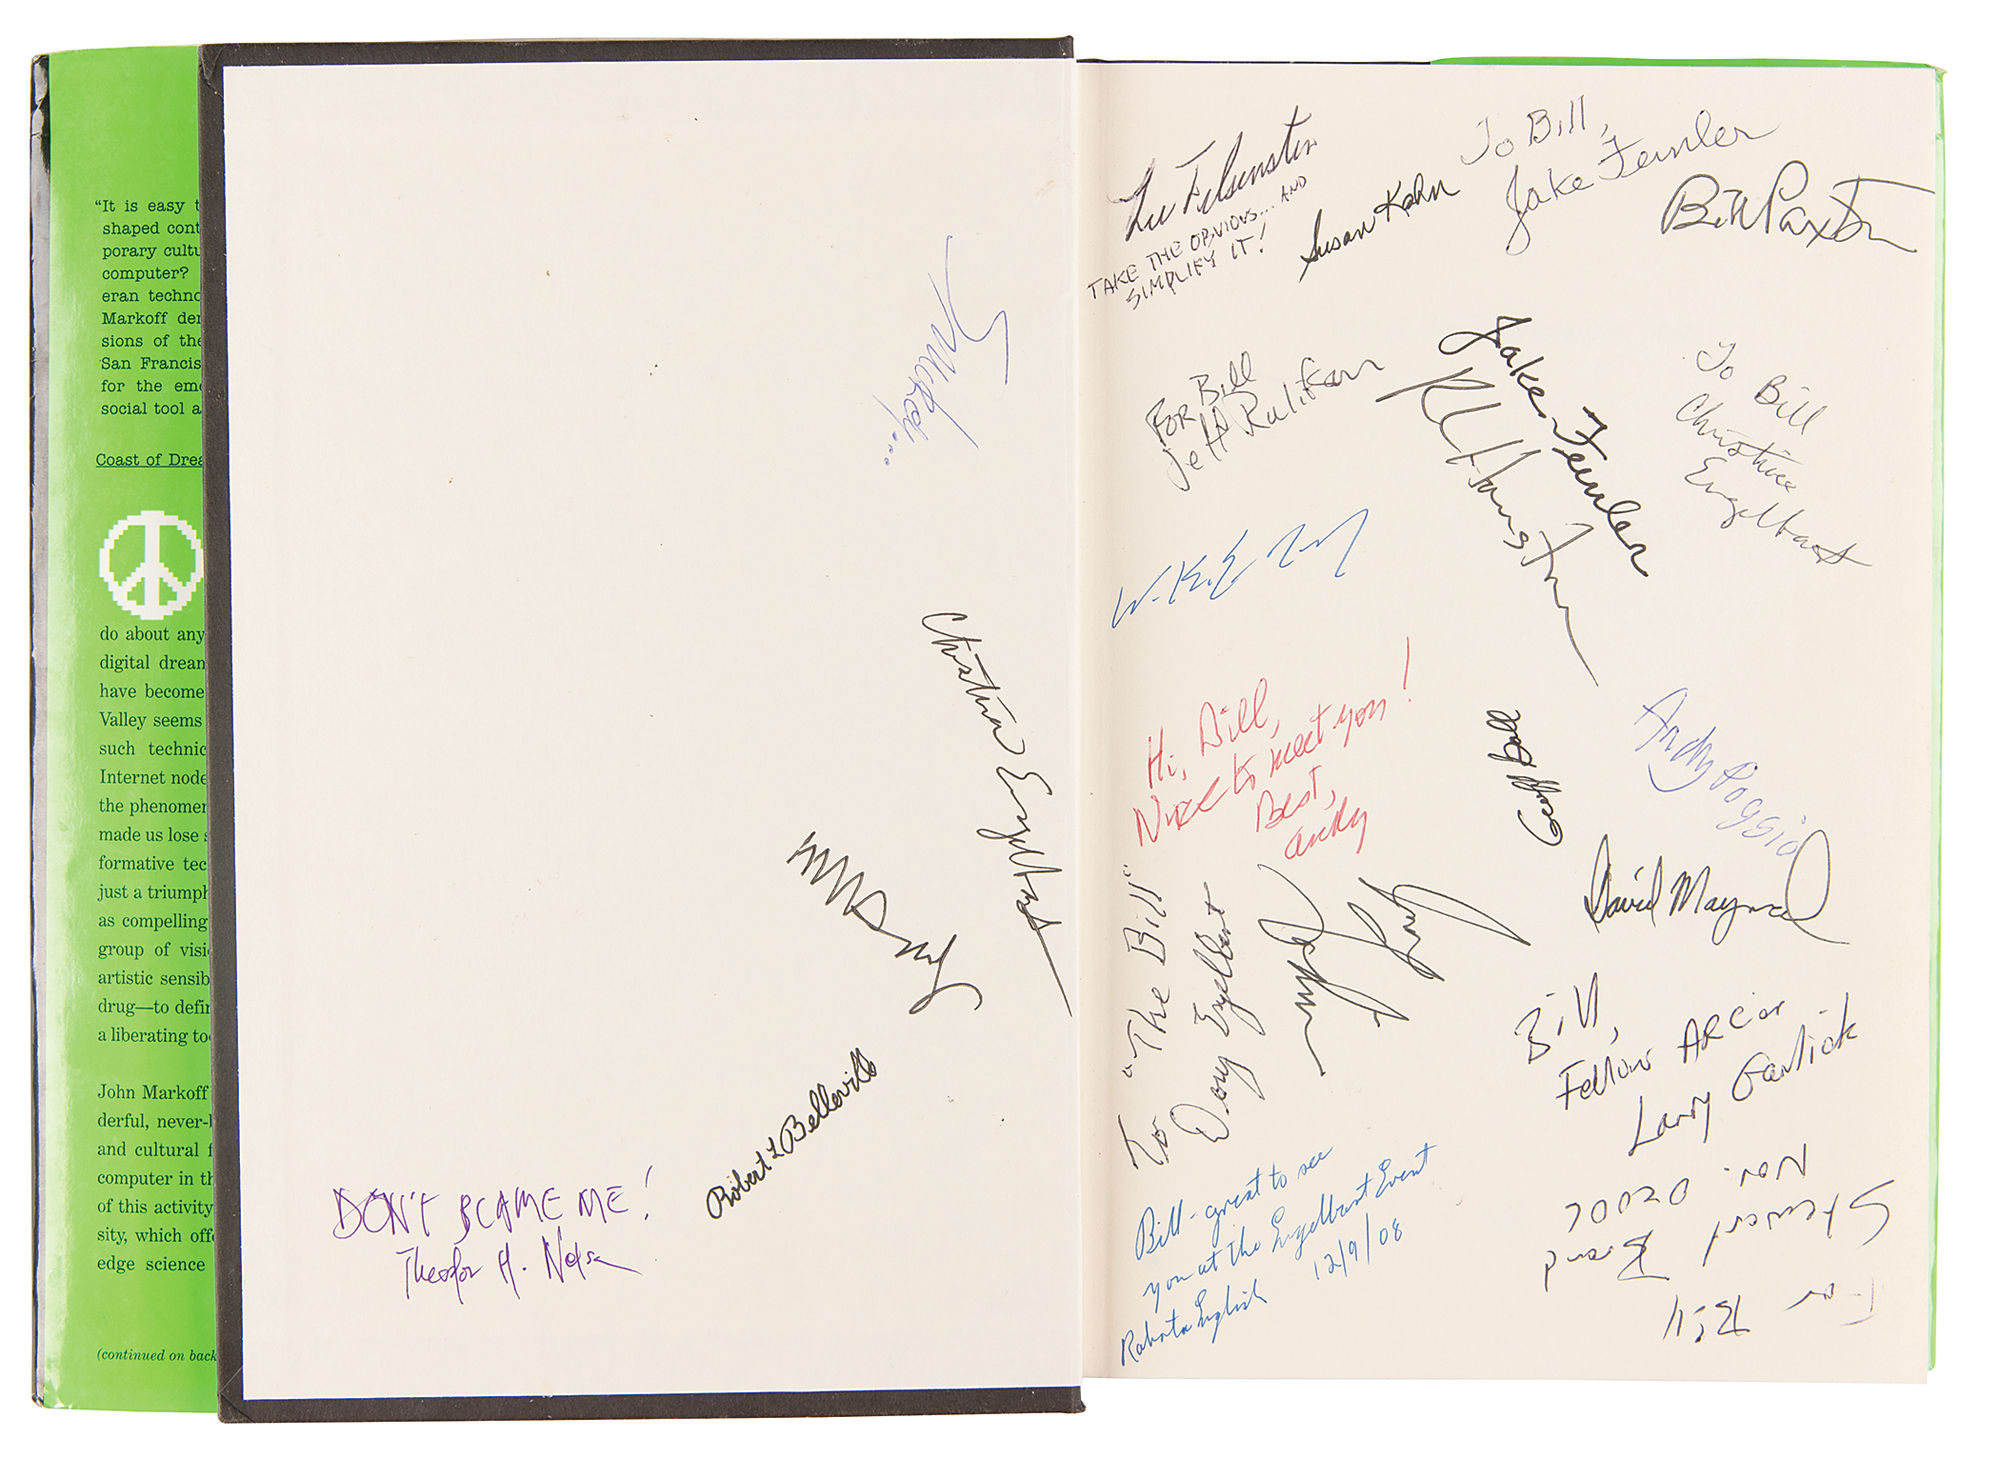 "It is easy t
shaped cont
porary cultu
computer?
eran techno
Markoff der
sions of the
San Francis
for the eme
social tool a
Coast of Drea
do about any
digital dream
have become
Valley seems
such technic
Internet node
the phenomen
made us lose s
formative tec
just a triumph
as compelling
group of visi
artistic sensib
drug—to defin
a liberating too
John Markoff
derful, never-b
and cultural f
computer in th
of this activity
sity, which offe
edge science
(continued on back
Christina Engelbart
Robert L Belleville
DON'T BLAME ME!
Theodor H. Nelson
Lee Felsenstein
TAKE THE OBVIOUS... AND
SIMPLIFY IT!
Susan Kahn
To Bill,
Jake Feinler
Bill Paxton
FOR Bill
Jeff Rulifson
Jake Feinler
To Bill
Christina
Engelbart
Hi, Bill,
Nice to meet you!
Best,
Andy
Geoff Ball
Andy Poggio
David Maynard
To "The Bill"
Doug Engelbart
Bill,
Fellow ARCer
Larry Garlick
Bill - great to see
you at the Engelbart Event
12/9/08
Roberta English
For Bill
Stewart Brand
Nov. 02006